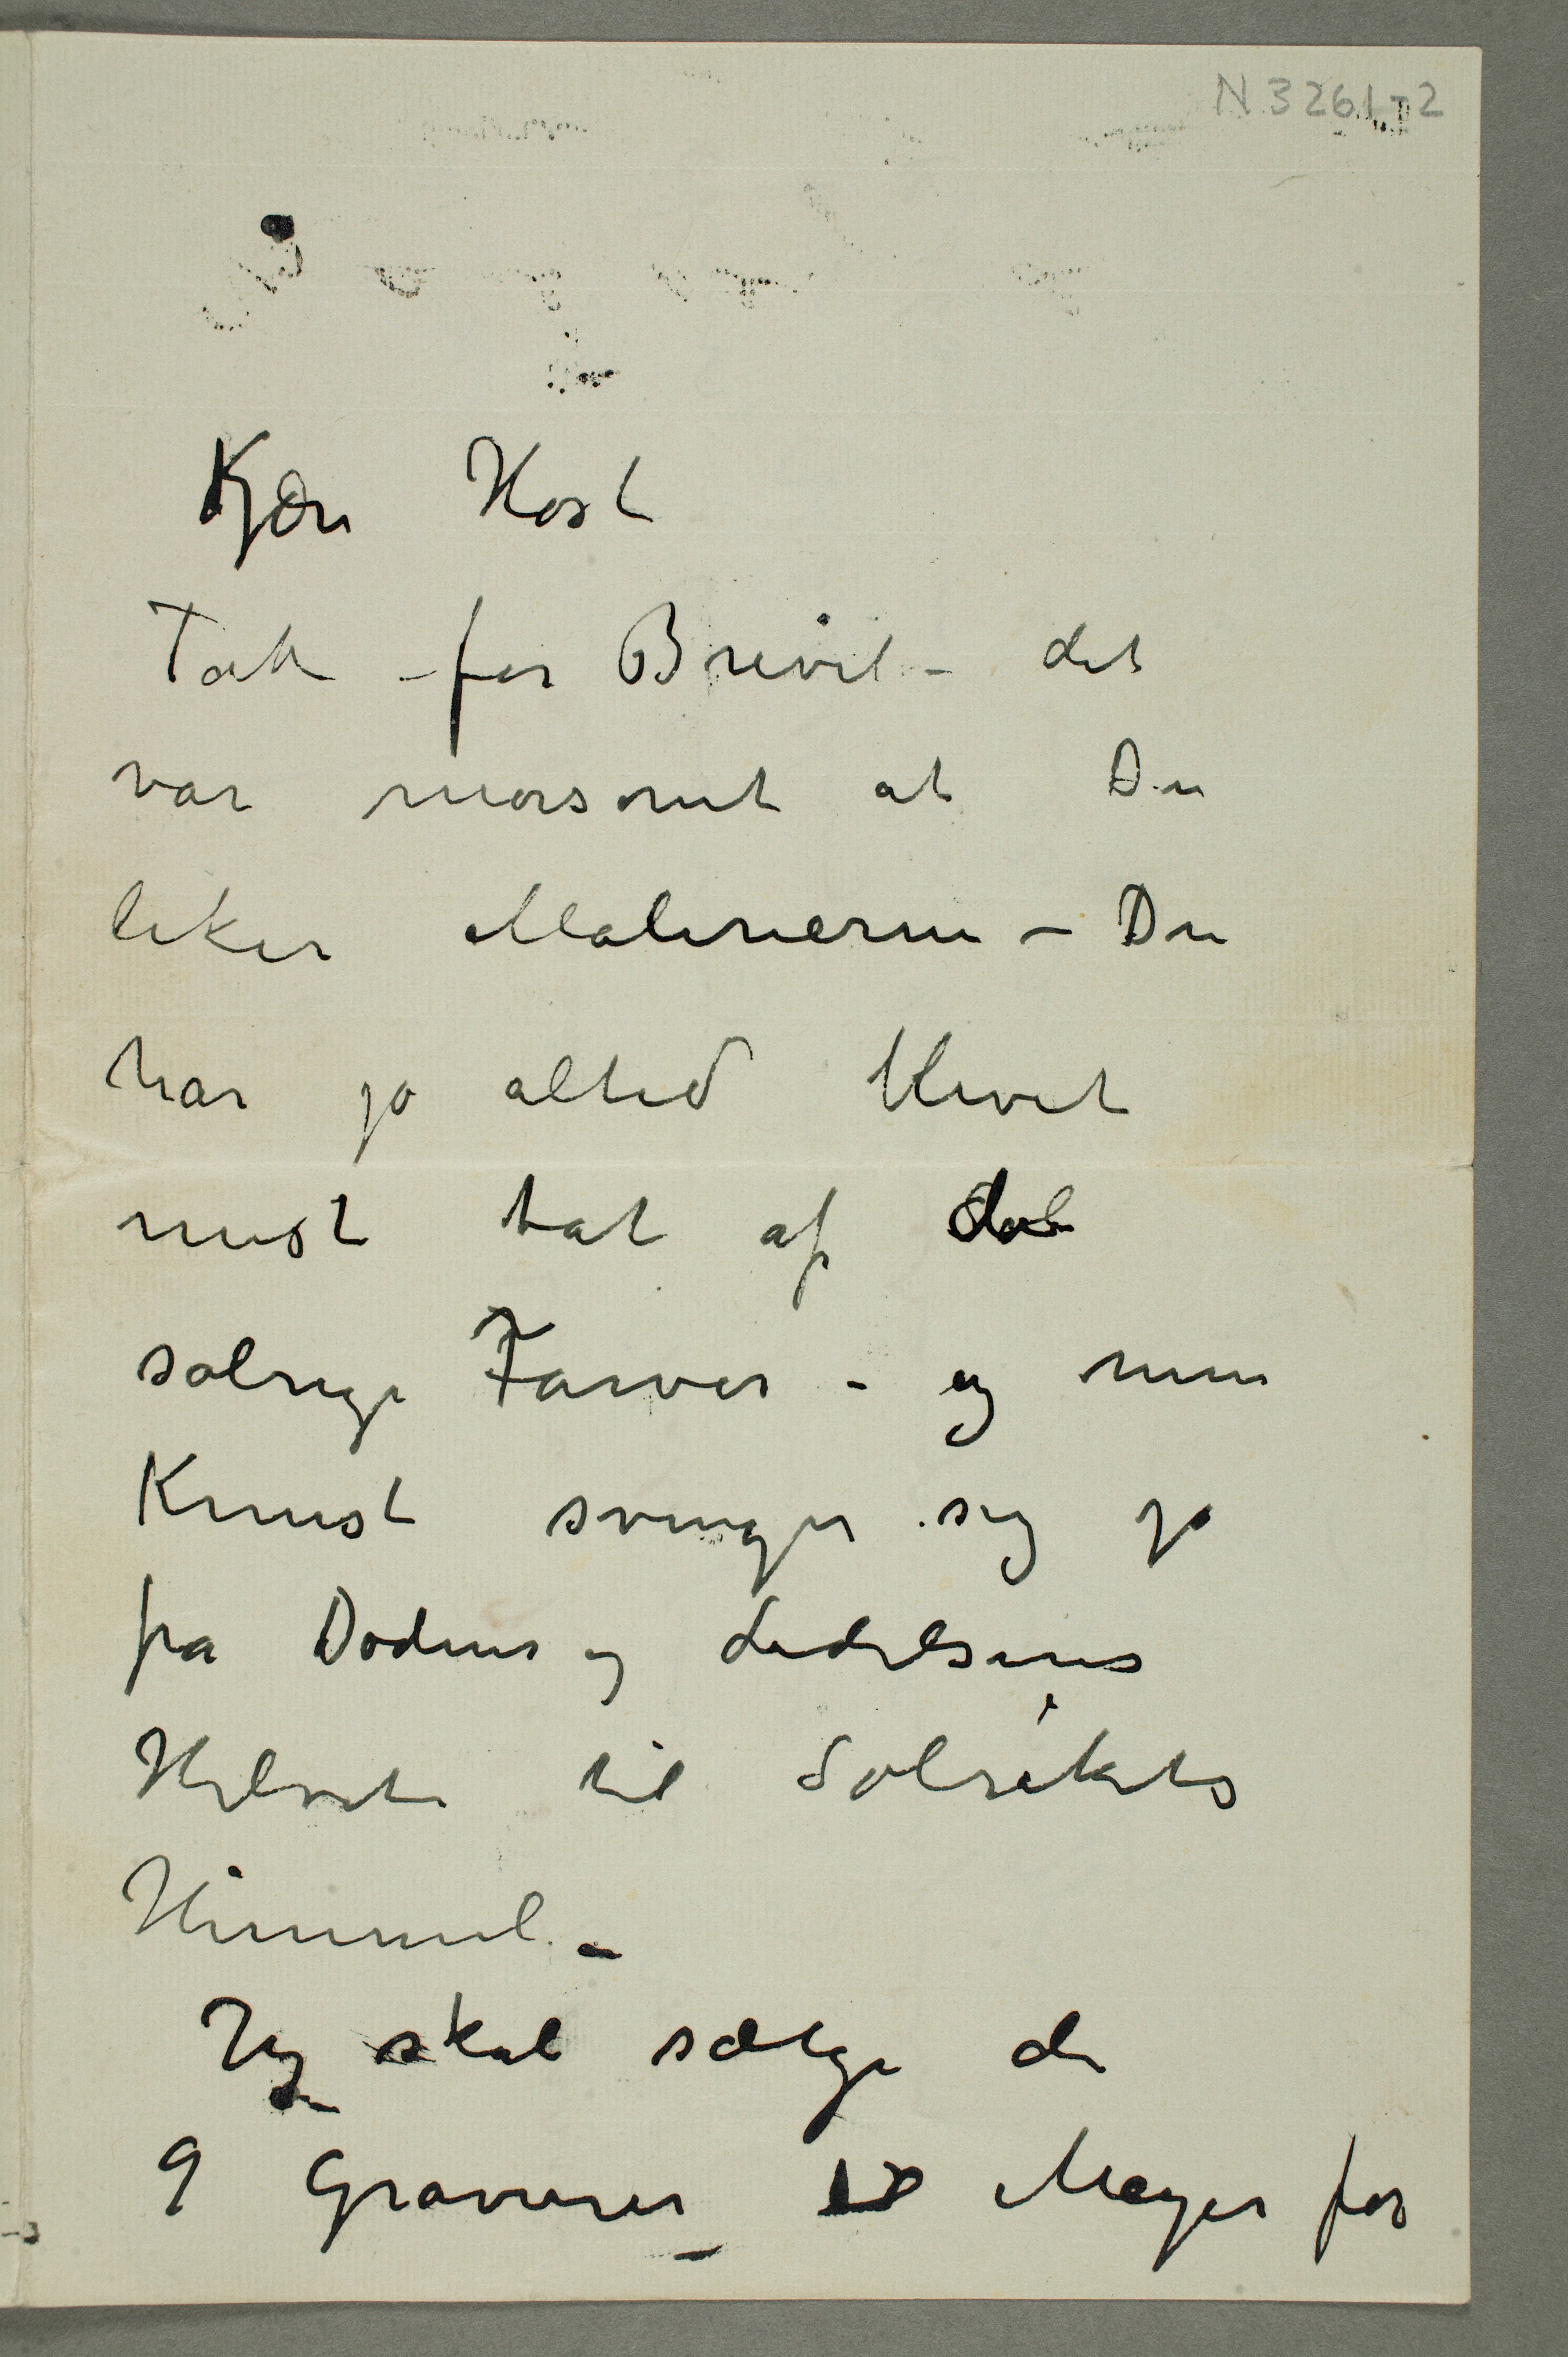 N 3261-2
Kjære Høst
Tak for Brevet – det
var morsomt at Du
liker Malerierne – Du
har jo altid blevet
mest tat af
solrige Farver – og min
Kunst svinger sig jo
fra Dødens og Lidelsens
Helvete til Solrikets
Himmel –
Jeg skal sælge de
9 Gravurer til Meyer for